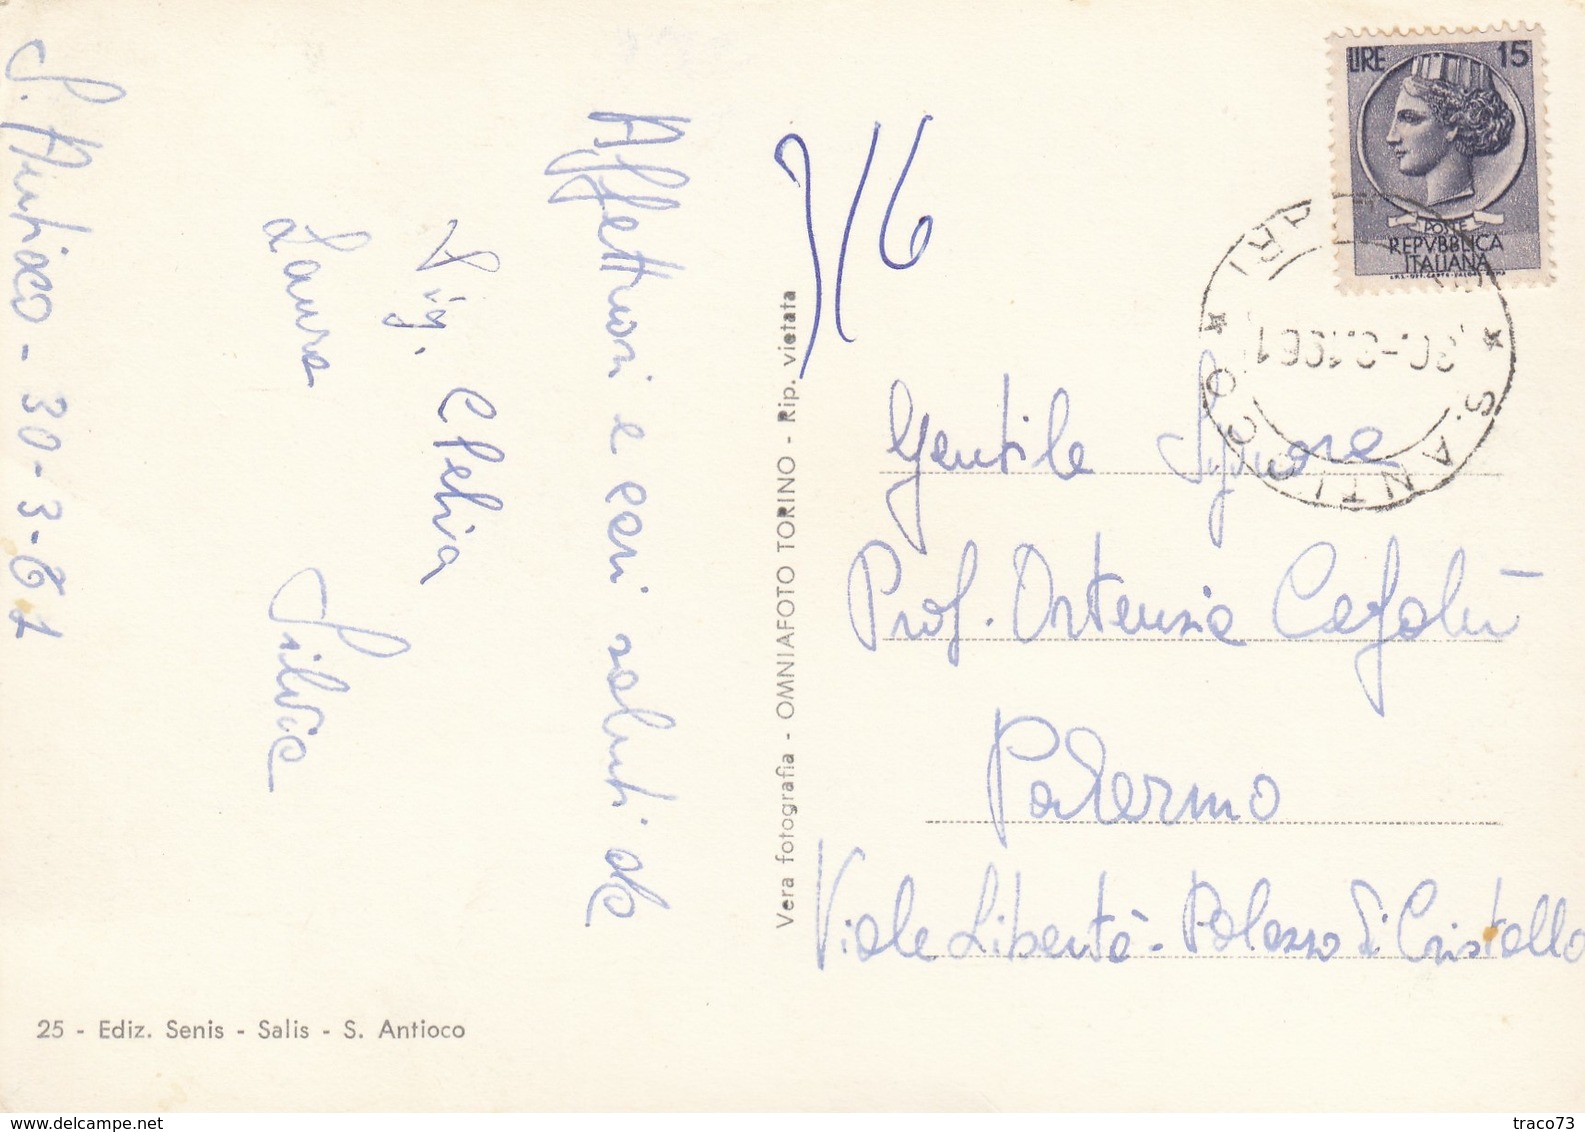 S. Antioco - 30-3-61
Affettuosi e cari saluti da
Sig. Clelia
Laura Silvia
LIRE 15
POSTE
REPVBBLICA
ITALIANA
S. ANTIOCO
30.-3.1961
Vera fotografia - OMNIAFOTO TORINO - Rip. vietata
Gentile Signora
Prof. Ortensia
Palermo
Viale Libertà - Palazzo di Cristallo
25 - Ediz. Senis - Salis - S. Antioco
www.delcampe.net
traco73